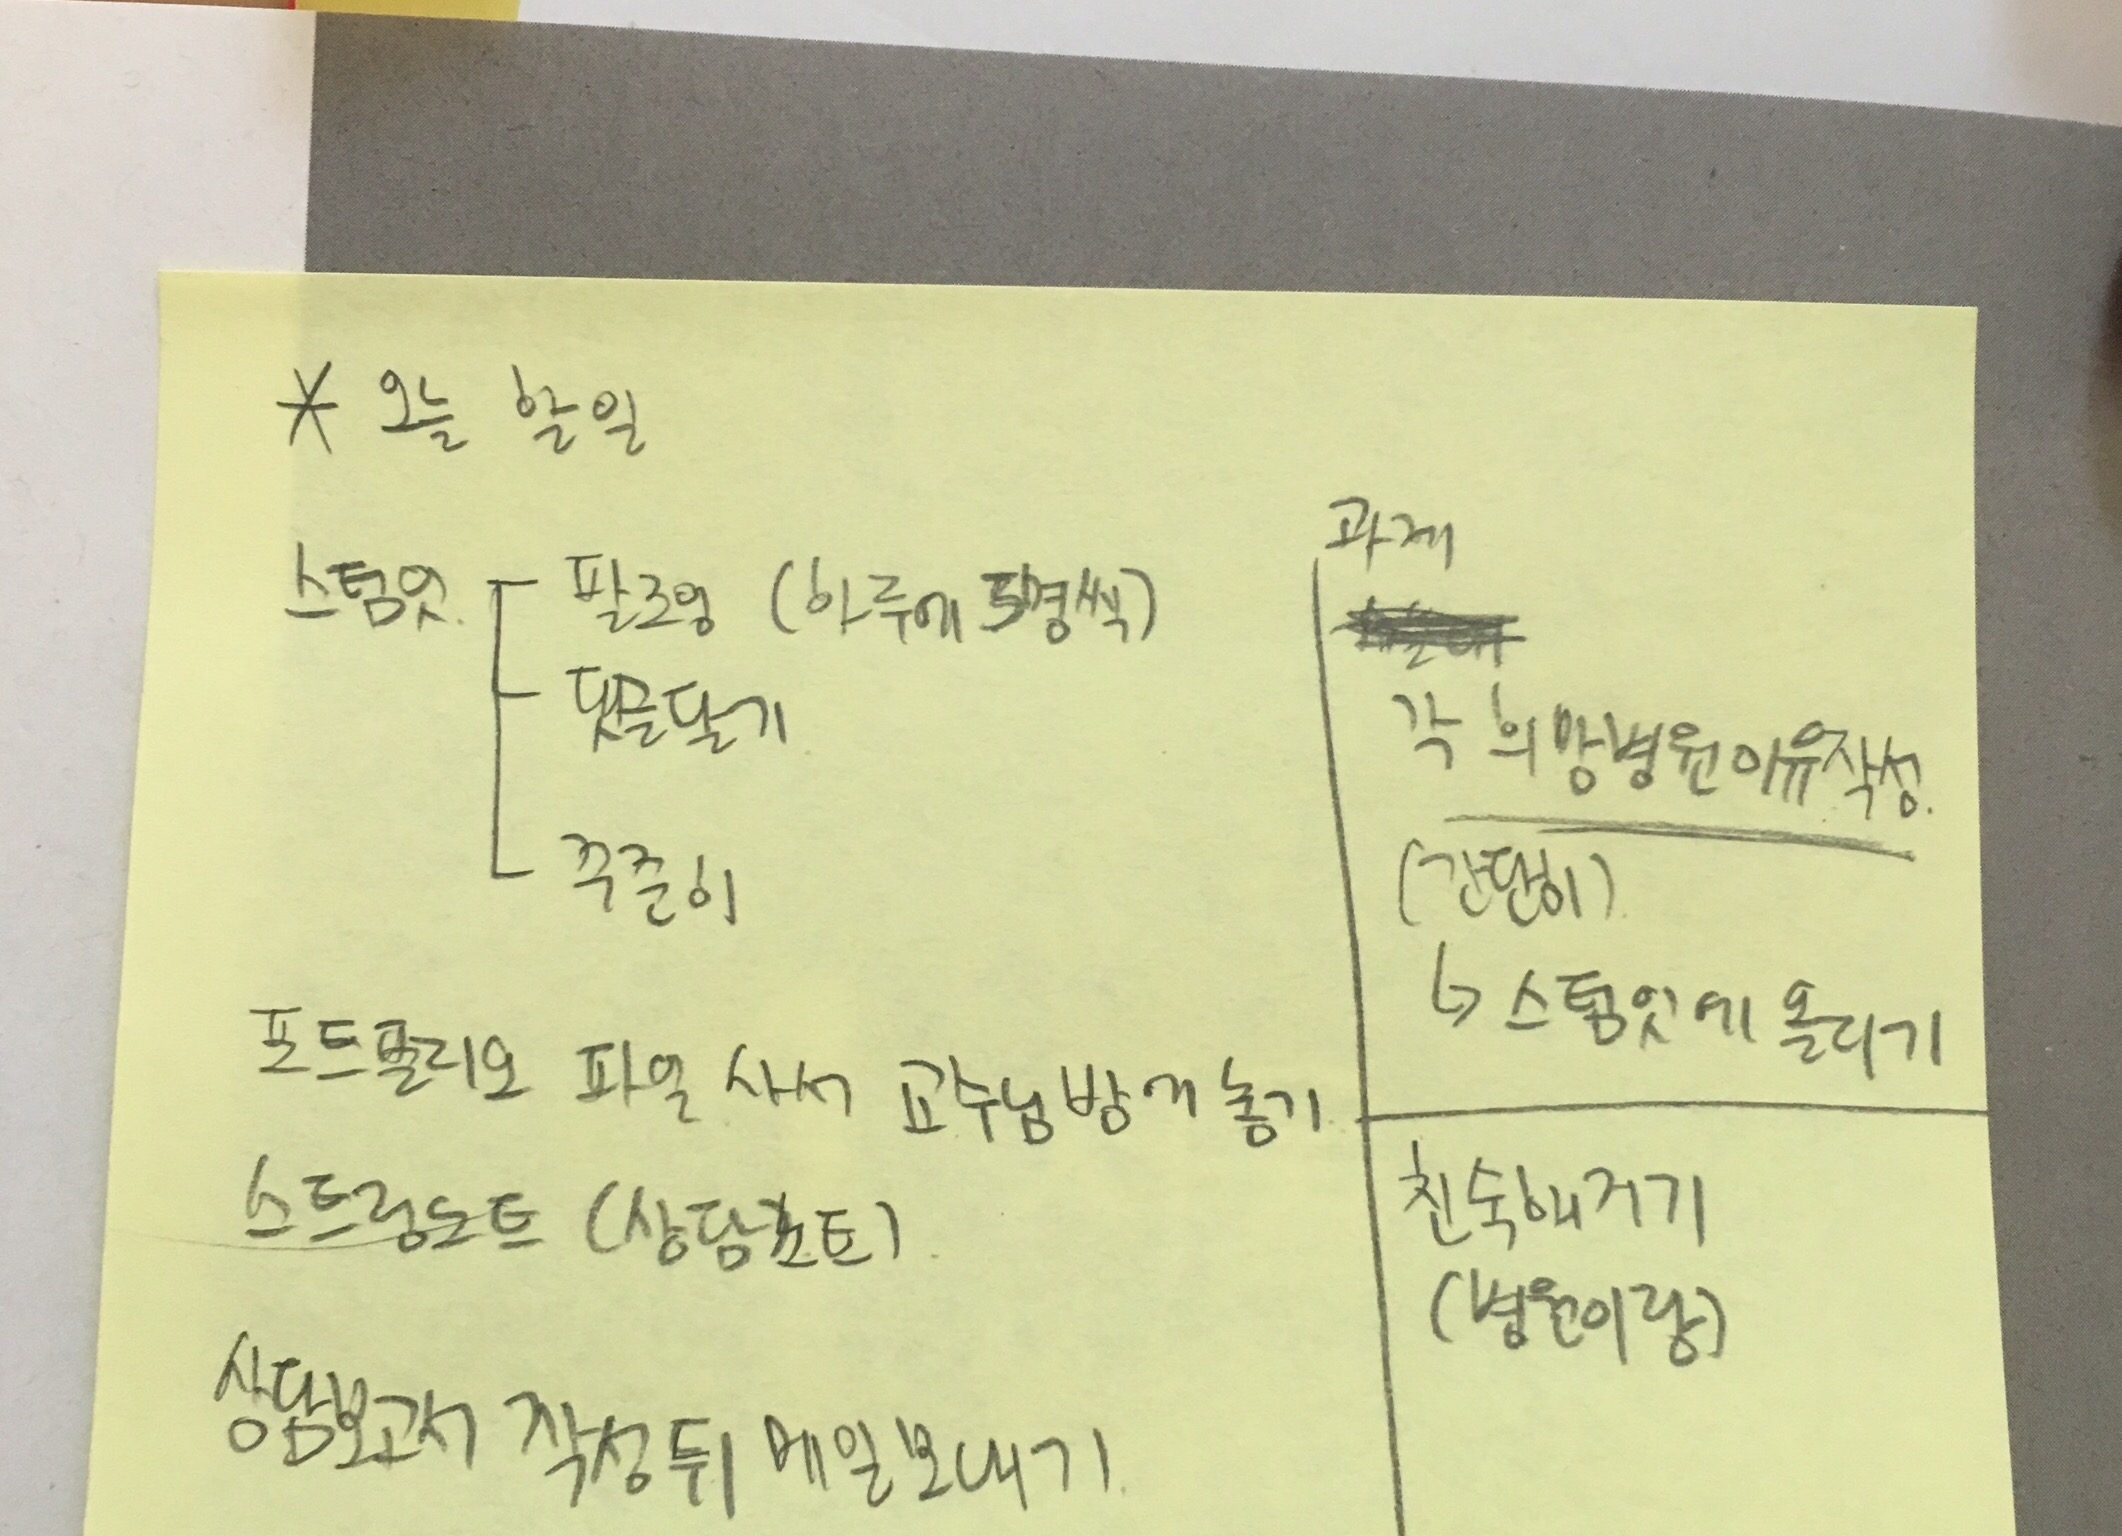 * 오늘 할일
스팀잇
팔로잉 (하루에 5명씩)
댓글달기
꾸준히
포트폴리오 파일 사서 교수님방에 놓기
스트링노트 (상담포트)
상담보고서 작성뒤 메일보내기
과제
각 희망병원이유작성.
(간단히)
↳ 스팀잇에 올리기
친숙해지기
(병원이랑)